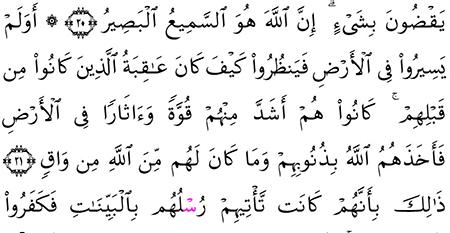 يَقْضُونَ بِشَىْءٍ ۗ إِنَّ ٱللَّهَ هُوَ ٱلسَّمِيعُ ٱلْبَصِيرُ ﴿٢٠﴾ ۞ أَوَلَمْ
يَسِيرُوا۟ فِى ٱلْأَرْضِ فَيَنظُرُوا۟ كَيْفَ كَانَ عَـٰقِبَةُ ٱلَّذِينَ كَانُوا۟ مِن
قَبْلِهِمْ ۚ كَانُوا۟ هُمْ أَشَدَّ مِنْهُمْ قُوَّةً وَءَاثَارًا فِى ٱلْأَرْضِ
فَأَخَذَهُمُ ٱللَّهُ بِذُنُوبِهِمْ وَمَا كَانَ لَهُم مِّنَ ٱللَّهِ مِن وَاقٍ ﴿٢١﴾
ذَٰلِكَ بِأَنَّهُمْ كَانَت تَّأْتِيهِمْ رُسُلُهُم بِٱلْبَيِّنَـٰتِ فَكَفَرُوا۟